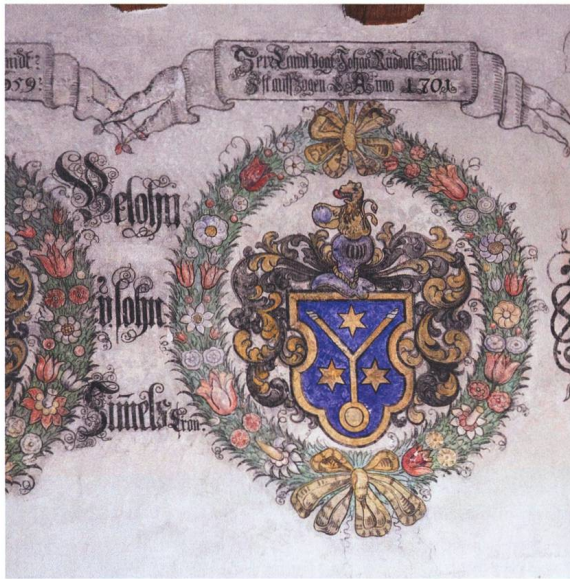 midt:
959:
Herr Landvogt Johan Rudolf Schmidt
Ist auff zogen Anno 1701.
Belohn
v. sohn
Himels Cron